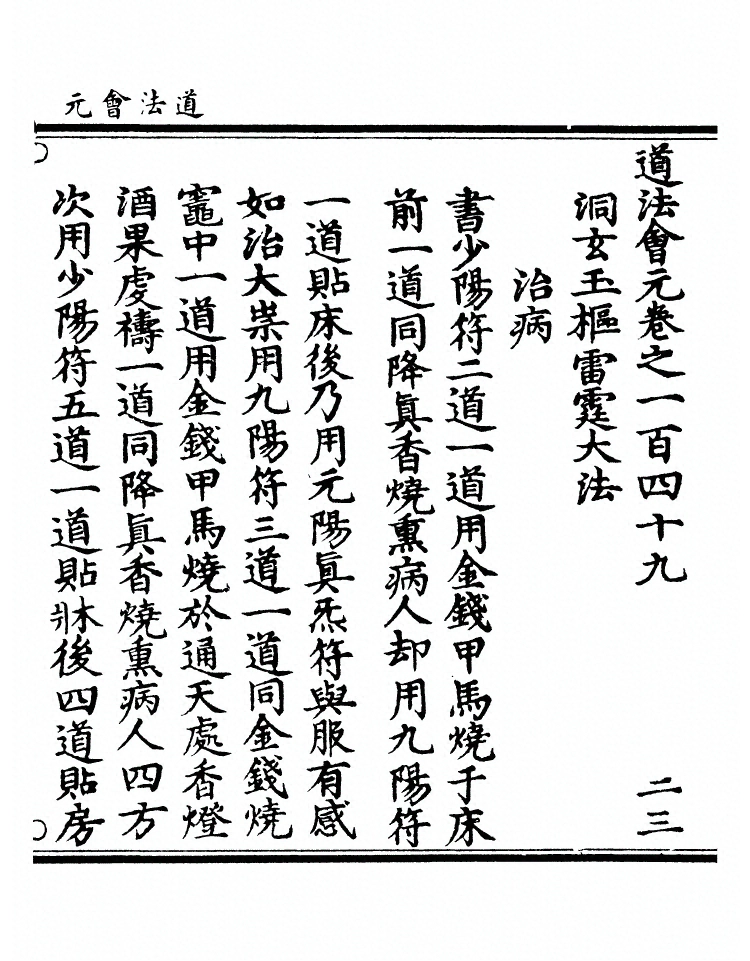 道法會元
道法會元卷之一百四十九 二三
洞玄玉樞雷霆大法
治病
書少陽符二道一道用金錢甲馬燒于床
前一道同降眞香燒熏病人却用九陽符
一道貼床後乃用元陽眞炁符與服有感
如治大祟用九陽符三道一道同金錢燒
竈中一道用金錢甲馬燒於通天處香燈
酒果虔禱一道同降眞香燒熏病人四方
次用少陽符五道一道貼牀後四道貼房